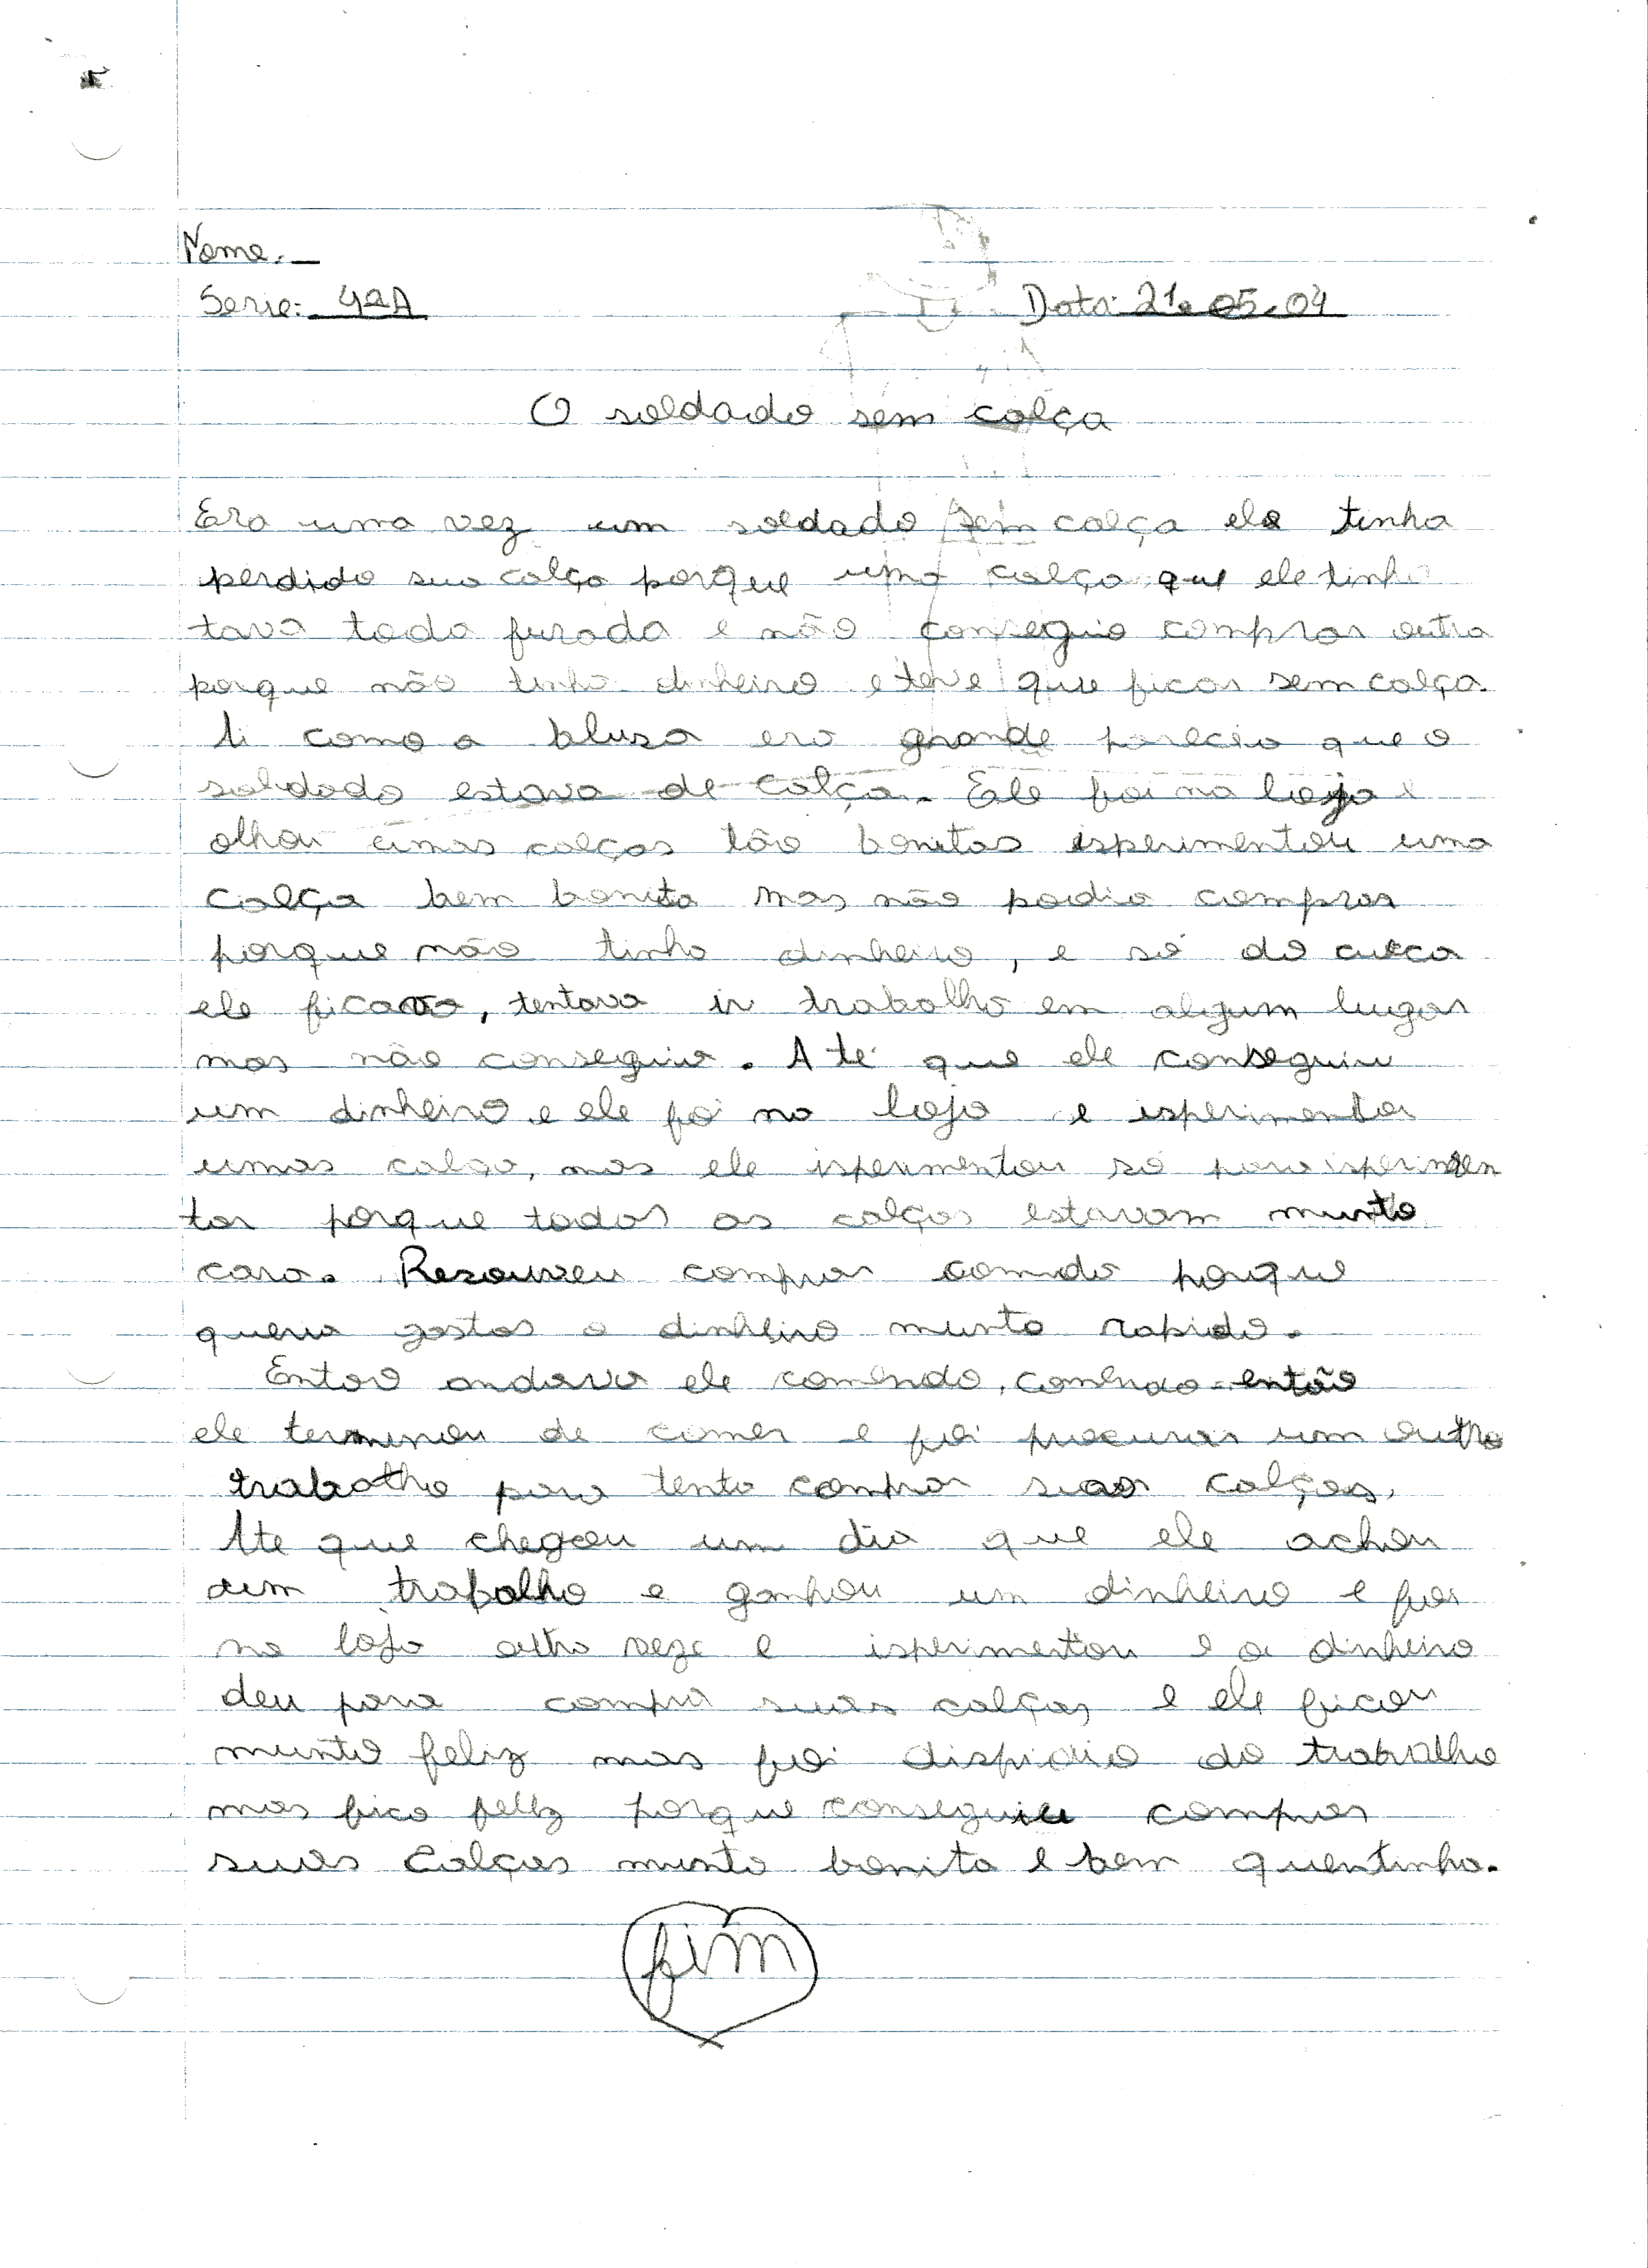 Nome:
Serie: 4ªA Data: 21.05.04
O soldado sem calça
Era uma vez um soldado sem calça ele tinha
perdido sua calça porque uma calça que ele tinha
tava toda furada e não conseguio comprar outra
porque não tinha dinheiro e teve que ficar sem calça.
Ii como a blusa era grande parecia que o
soldado estava de calça. Ele foi na loja e
olhou umas calças tão bonitas isperimentou uma
calça bem bonita mas não podia comprar
porque não tinha dinheiro, e só do cueca
ele ficava, tentava ir trabalho em algum lugar
mas não conseguia. Ate que ele conseguiu
um dinheiro e ele foi na loja e isperimentar
umas calça, mas ele isperimentou só para isperimen
tar porque todas as calças estavam munto
cara. Resouveu comprar comida porque
queria gastar o dinheiro munto rapido.
Entao andava ele comendo, comendo então
ele terminou de comer e foi procurar um outro
trabalho para tenta comprar suas calças.
Ate que chegou um dia que ele achou
um trabalho e ganhou um dinheiro e foi
na loja outra veze e isperimentou e o dinheiro
deu para compra suas calças e ele ficou
munto feliz mas foi dispidio do trabalho
mas fico feliz porque conseguiu comprar
suas calças munto bonita e bem quentinha.
fim